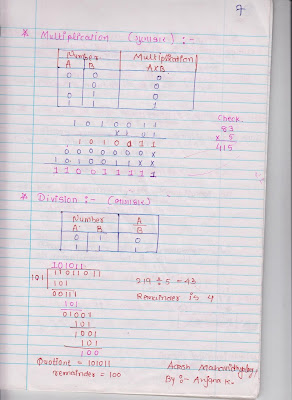 7
* Multiplication :-
Number Multiplication
A B AXB
0 0 0
1 0 0
0 1 0
1 1 1
1 0 1 0 0 1 1
x 1 0 1
1 0 1 0 0 1 1
0 0 0 0 0 0 0 x
1 0 1 0 0 1 1 x x
1 1 0 0 1 1 1 1 1
Check
83
x 5
415
* Division :-
Number A
A B B
0 1 0
1 1 1
101011
101 11011011
101
00111
101
01001
101
1001
101
100
219 ÷ 5 = 43
Remainder is 4
Quotient = 101011
remainder = 100
By :- Anjana K.